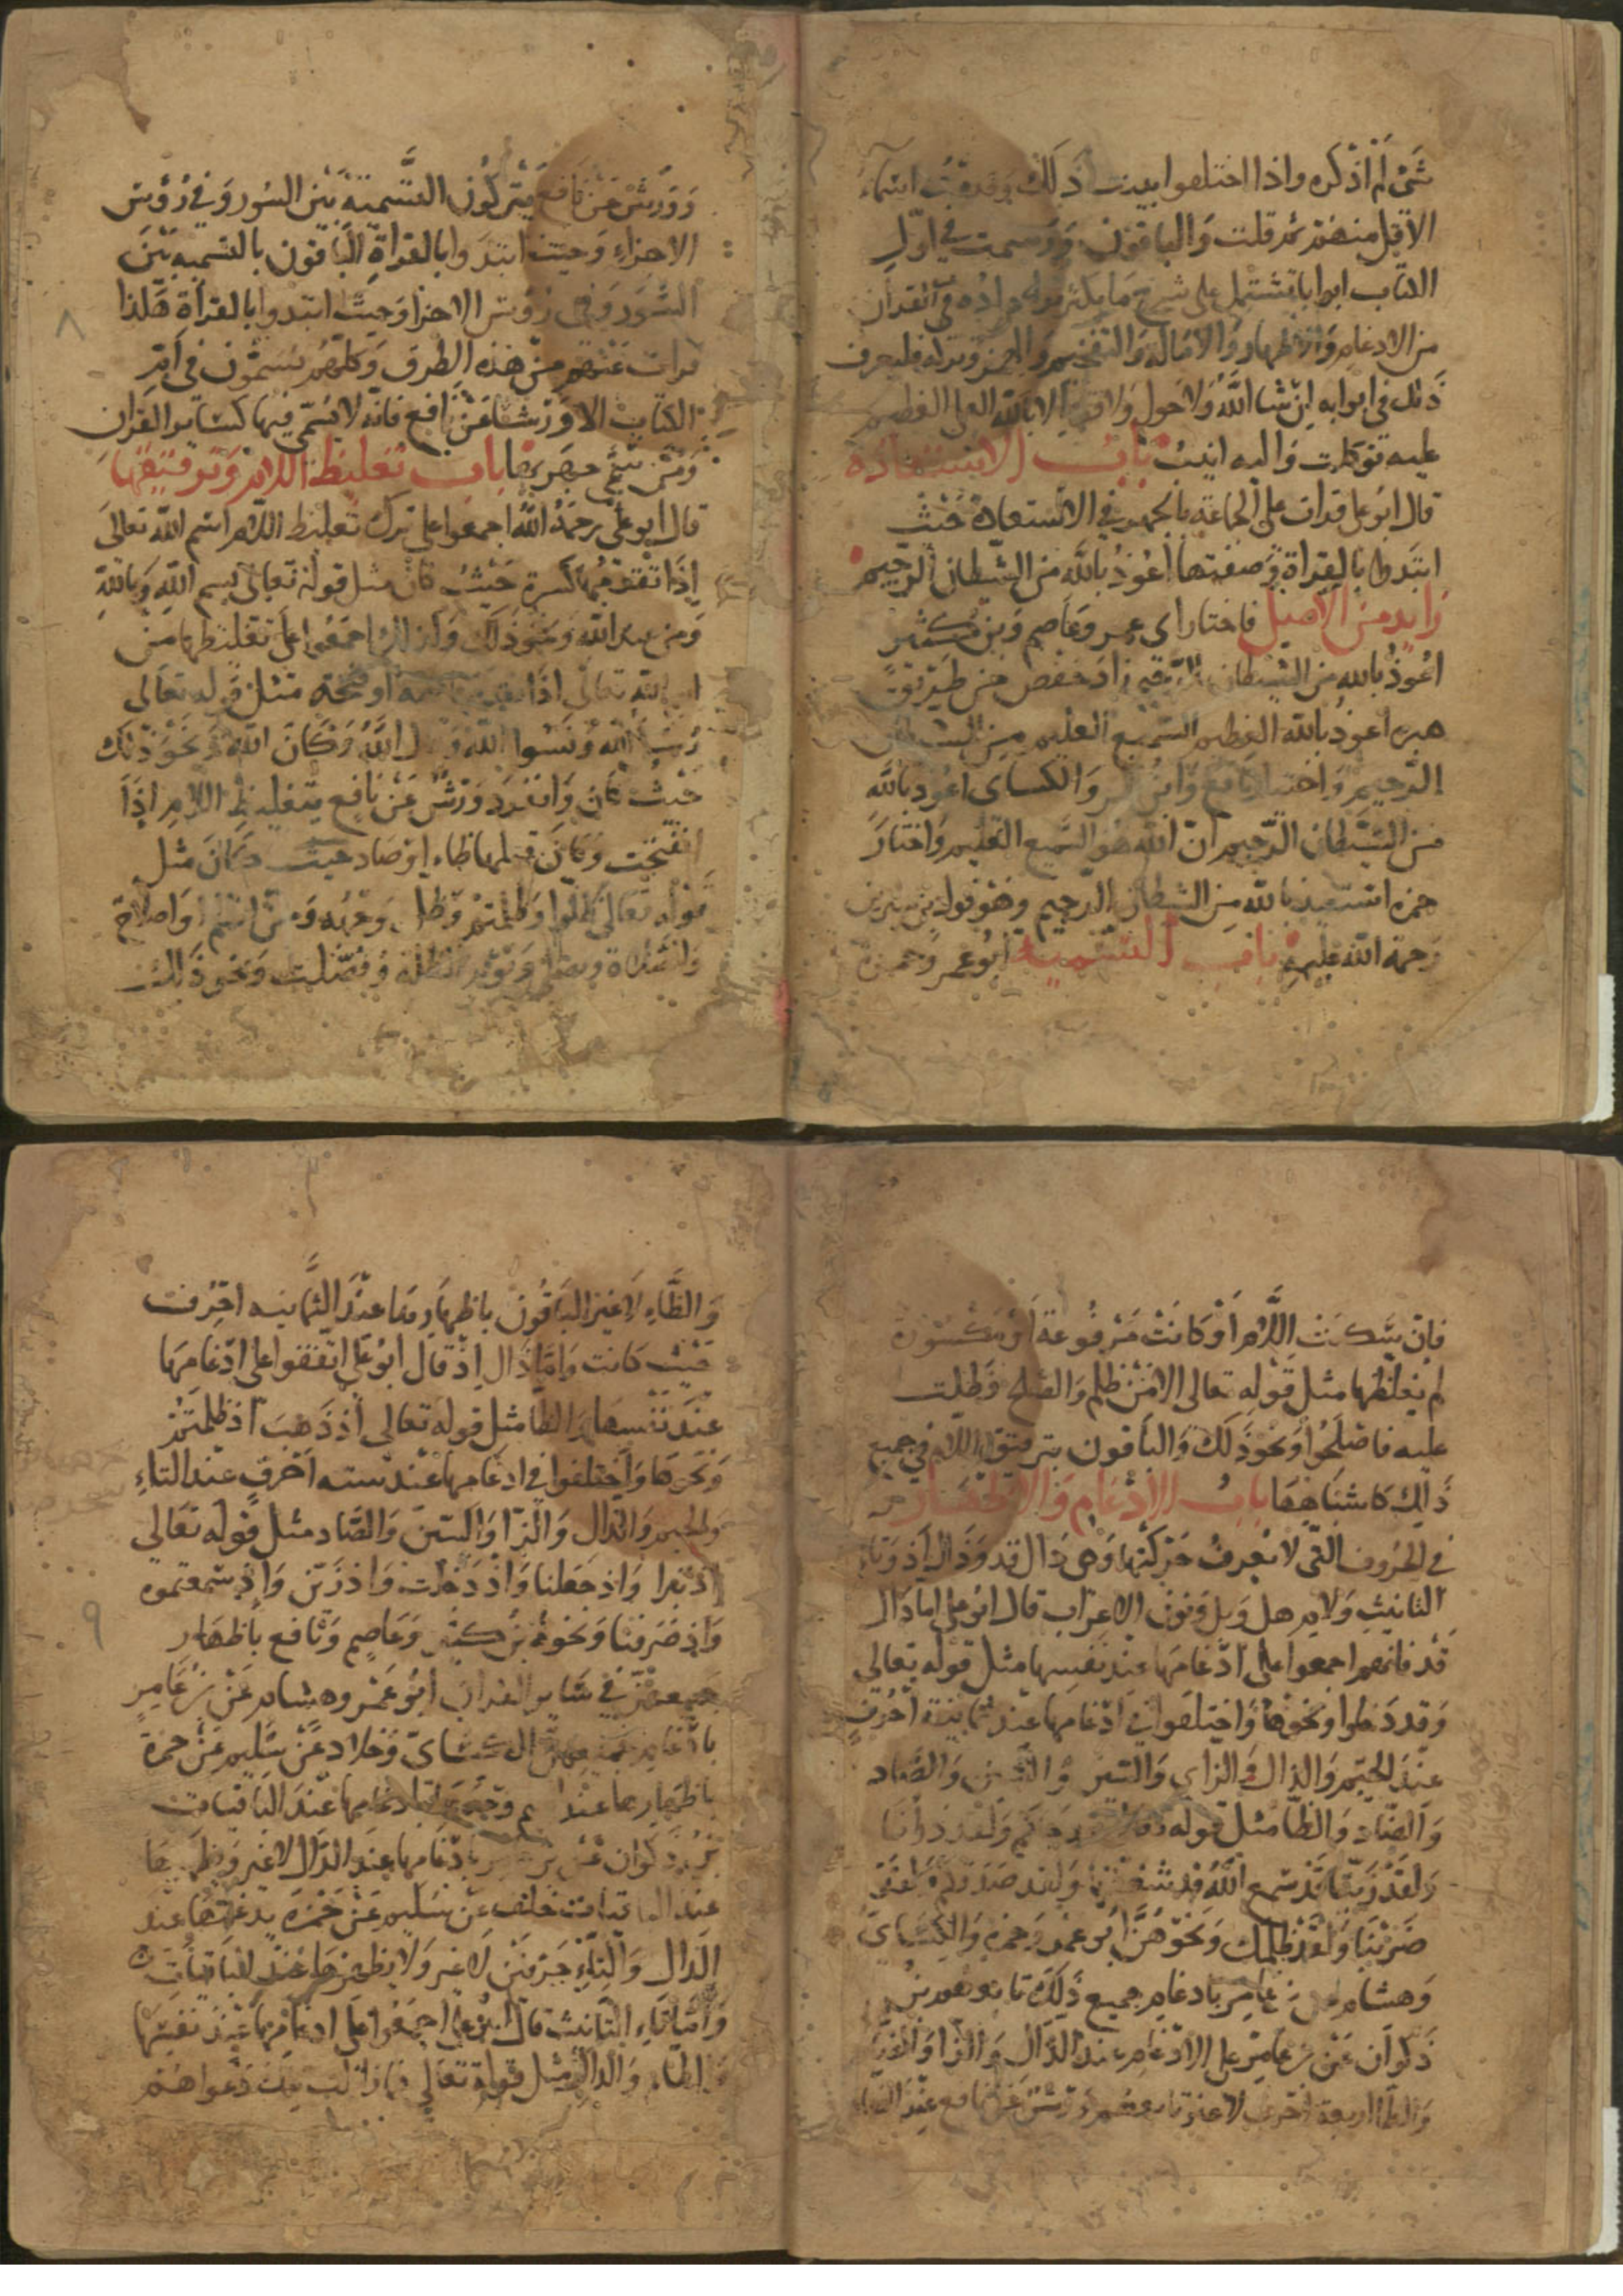 شيء لم أذكره واذا اختلفوا بينت ذلك وقدمت اسماء
الاقل منهم ثم قلت والباقون ورسمت في اوّل
الكتاب ابوابا تشتمل على شرح ما يكثر دوره في القرآن
من الادغام والاظهار والامالة والتفخيم والهمز وتركه فليعرف
ذلك في ابوابه ان شا الله ولا حول ولا قوة الا بالله العلي العظيم
عليه توكلت واليه انيب باب الاستعاذة
قال ابو علي قرات على الجماعة بالجهر في الاستعاذة حيث
ابتدوا بالقراة وصفتها اعوذ بالله من الشيطان الرجيم
زايد من الاصل فاختار ابى عمر وعاصم وبن كثير
اعوذ بالله من الشيطان الرجيم زاد حفص من طريق
هبره اعوذ بالله العظيم السميع العليم من الشيطان
الرجيم واختيار نافع وابن عامر والكساى اعوذ بالله
من الشيطان الرجيم انّ الله هو السميع العليم واختار
حمزه استعيذ بالله من الشيطان الرجيم وهو قول بن سيرين
رحمة الله عليهم باب التسمية ابو عمر وحمزة
وورش عن نافع يتركون التسمية بين السور وفي رؤس
الاجزاء وحيث ابتدوا بالقراة الباقون بالتسميه بين
السور وفي رؤس الاجزا وحيث ابتدوا بالقراة هكذا
قرات عنهم من هذه الطرق وكلهم يسمّون في امّ
الكتاب الا ورشا عن نافع فانه لا يسمّي فيها كسائر القران
باب تغليظ اللام وترقيقها
قال ابو علي رحمة الله اجمعوا على ترك تغليظ اللام اسم الله تعالى
إذا تقدّمها كسرة حيث كان مثل قوله تعالى بسم الله وبالله
ومن عند الله ونحو ذلك وكذلك اجمعوا على تغليظها من
اسم الله تعالى اذا تقدمها ضمه او فتحه مثل قوله تعالى
رسل الله ونسوا الله وقال الله وكان الله ونحو ذلك
حيث كان وانفرد ورش عن نافع بتغليظ اللام اذا
انفتحت وكان قبلها ظاء او صاد حيث كان مثل
قوله تعالى ظلوا وظلمتم وظل وجهه
والصلاة وفصّلت ونحو ذلك
٨
فإن سكنت اللام أو كانت مرفوعة أو مكسورة
لم يغلظها مثل قوله تعالى الا من ظلم والصلح وظلت
عليه فاصلحوا ونحو ذلك والباقون بترقيق اللام في جميع
ذلك كاشباهها باب الإدغام والاظهار
في الحروف التي لا يعرف حركتها وهى دال قد وذال إذ وتاء
التانيث ولام هل وبل ونون الاعراب قال ابو على اما دال
قد فانهم اجمعوا على ادغامها عند نفسها مثل قوله تعالى
وقد دخلوا ونحوها واختلفوا في ادغامها عند ثمانية احرف
عند الجيم والذال والزاي والسين والشين والصاد
والضاد والظا مثل قوله ولقد ذرأنا
ولقد زينّا قد سمع الله قد شغفها ولقد صدقكم
ضربنا ولقد ظلمك ونحوهن ابو عمرو وحمزه والكساي
وهشام عن بن عامر بادغام جميع ذلك تابعهم بن
ذكوان عن بن عامر على الادغام عند الذال والزا والضاد
والظا اربعة احرف لا غير تابعهم ورش عن نافع عند الضاد
والظاء لا غير الباقون باظهارها عند الثمانيه احرف
حيث كانت وامّا ذال إذ قال ابو علي اتفقوا على ادغامها
عند نفسها والظا مثل قوله تعالى أذ ذهب أذ ظلمتم
ونحوها واختلفوا في ادغامها عند سته احرف عند التاء
والجيم والدال والزا والسين والصاد مثل قوله تعالى
اذ تبرا واذ جعلنا واذ دخلت واذ زين واذ سمعتموه
واذ صرفنا ونحوه بن كثير وعاصم ونافع باظهار
جميعهنّ في سائر القران أبو عمر وهشام عن بن عامر
بادغام جميعهن الكسائى وخلاد عن سليم عن حمزة
باظهارها عند الجيم وحدها وادغامها عند الباقيات
بن ذكوان عن بن عامر بادغامها عند الدال لا غير ويظهرها
عند الباقيات خلف عن سليم عن حمزة يدغمها عند
الدال والتاء حرفين لا غير ولا يظهرها عند الباقيات
وأمّا تاء التانيث قال ابو على اجمعوا على ادغامها عند نفسها
والطاء والدال مثل قوله تعالى فما زالت تلك دعواهم
٩